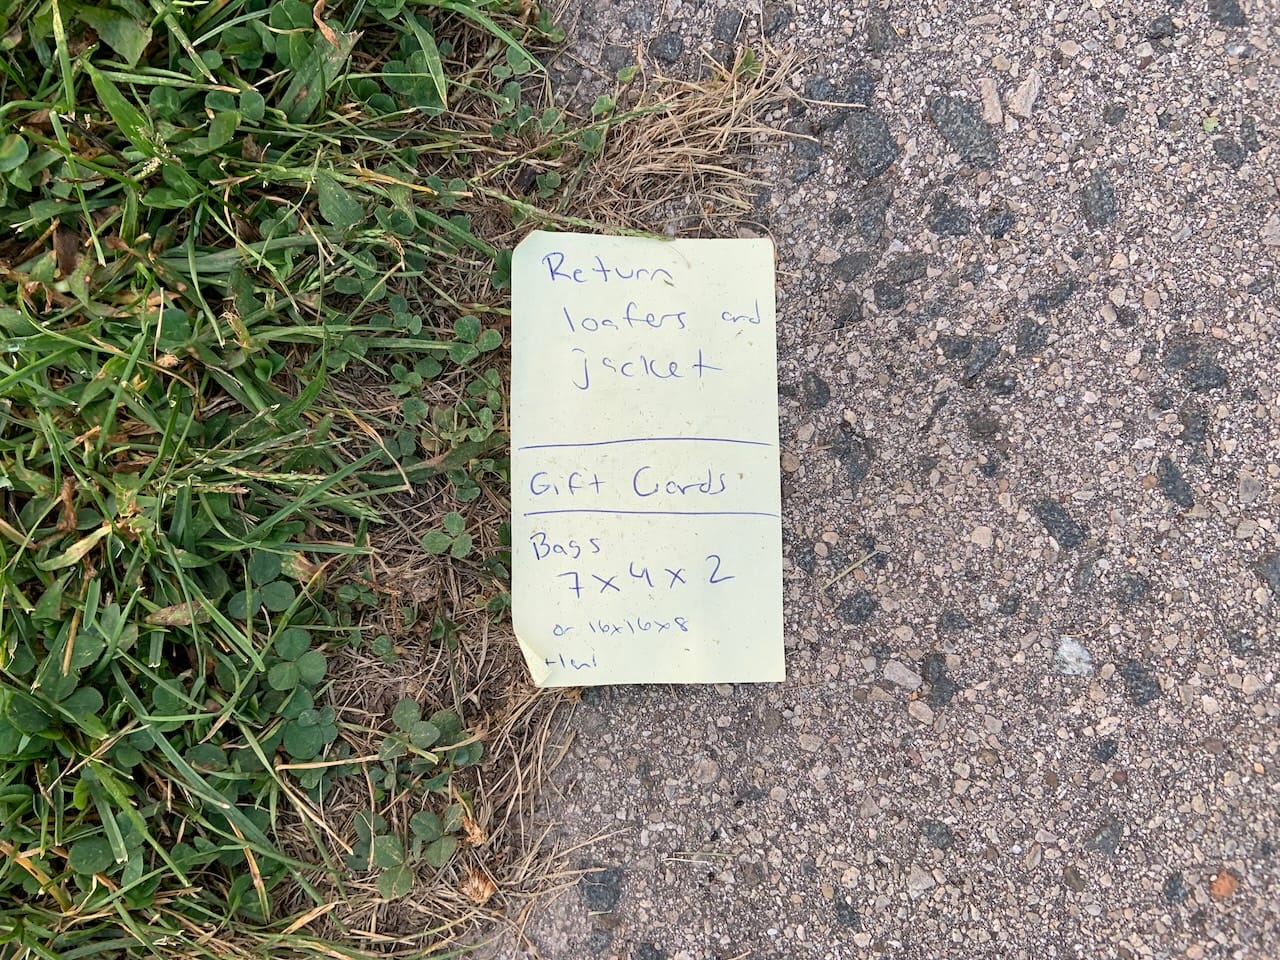 Return
loafers and
jacket
Gift Cards
Bags
7x4x2
or 16x16x8